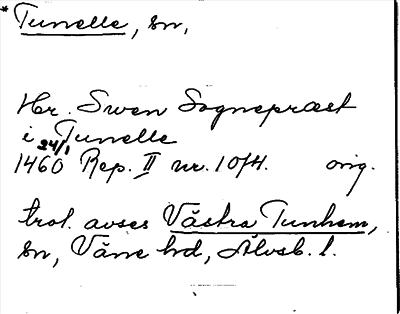 * Tunelle, sn,
Hr. Swen Sognepræst
i Tunelle
24/1
1460 Rep. II nr. 1074. orig.
trol. avses Västra Tunhem,
sn, Väne hd, Älvsb. l.